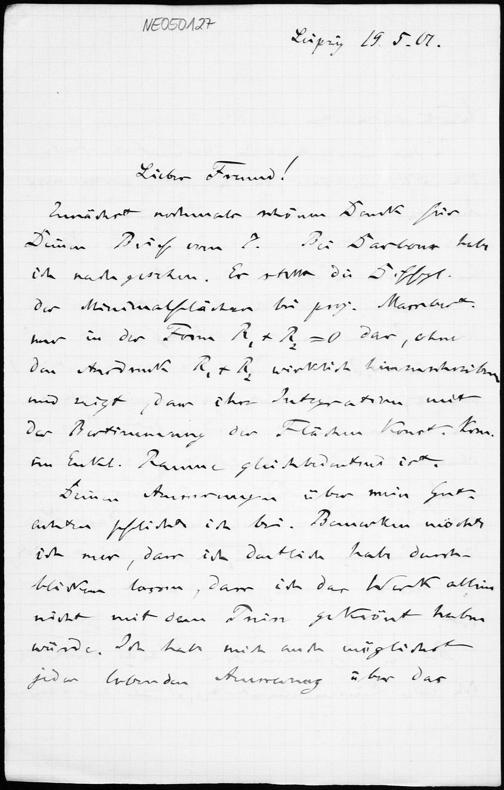 NE050127
Leipzig 19. 5. 01.
Lieber Freund!
Zunächst nochmals schönen Dank für
Deinen Brief vom 7. Bei Darboux habe
ich nachgesehen. Er stellt die Diffgl.
der Minimalflächen bei proj. Massbest.
nur in der Form R₁ + R₂ = 0 dar, ohne
den Ausdruck R₁ + R₂ wirklich hinzuschreiben
und zeigt, dass ihre Integration mit
der Bestimmung der Flächen Konst. Krm.
im Eukl. Raume gleichbedeutend ist.
Deinen Äusserungen über mein Gut-
achten pflichte ich bei. Bemerken möchte
ich nur, dass ich deutlich habe durch-
blicken lassen, dass ich das Werk allein
nicht mit dem Preise gekrönt haben
würde. Ich habe mich auch möglichst
jeder lobenden Äusserung über das